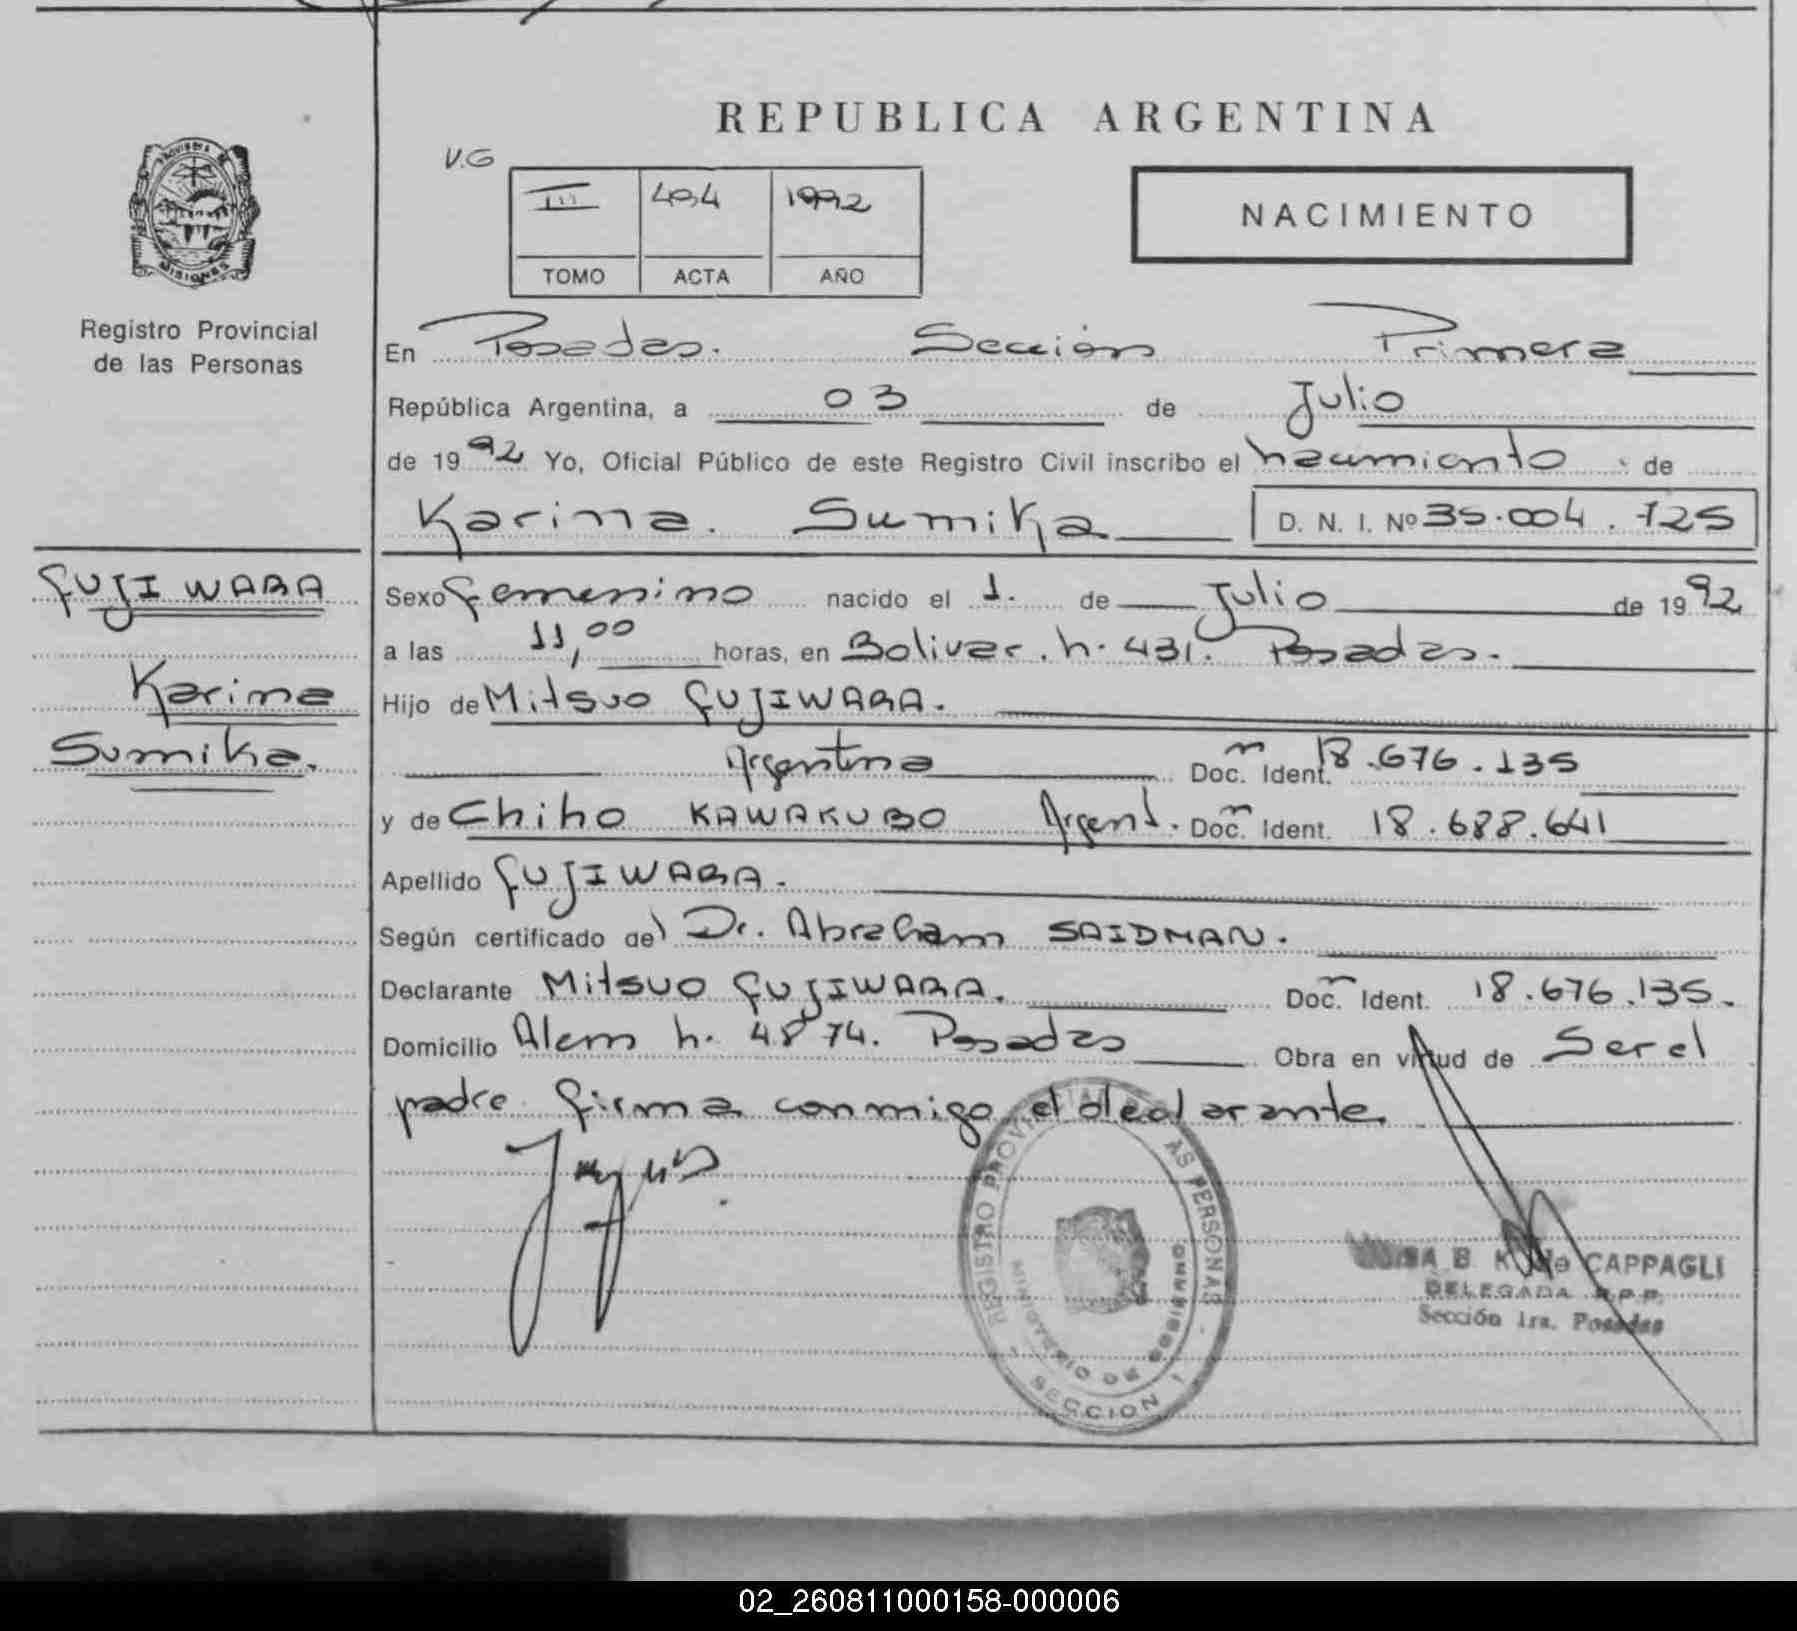 REPUBLICA ARGENTINA
PROVINCIA DE
MISIONES
Registro Provincial
de las Personas
V.G
III 494 1992
TOMO ACTA AÑO
NACIMIENTO
En Posadas. Sección Primera
República Argentina, a 03 de Julio
de 1992 Yo, Oficial Público de este Registro Civil inscribo el nacimiento de
Karina. Sumika D. N. I. Nº 35.004.125
FUJIWARA
Karina
Sumika.
Sexo femenino nacido el 1. de Julio de 1992
a las 11,00 horas, en Bolivar. n. 431. Posadas.
Hijo de Mitsuo FUJIWARA.
Argentina Doc. Ident. 18.676.135
y de Chiho KAWAKUBO Argent. Doc. Ident. 18.688.641
Apellido FUJIWARA.
Según certificado del Dr. Abraham SAIDMAN.
Declarante Mitsuo FUJIWARA. Doc. Ident. 18.676.135.
Domicilio Alem n. 4874. Posadas Obra en virtud de Ser el
padre firma conmigo el declarante.
REGISTRO PROVINCIAL DE LAS PERSONAS
MINISTERIO DE GOBIERNO
SECCION 1
B K de CAPPAGLI
DELEGADA R.P.P.
Sección 1ra. Posadas
02_260811000158-000006